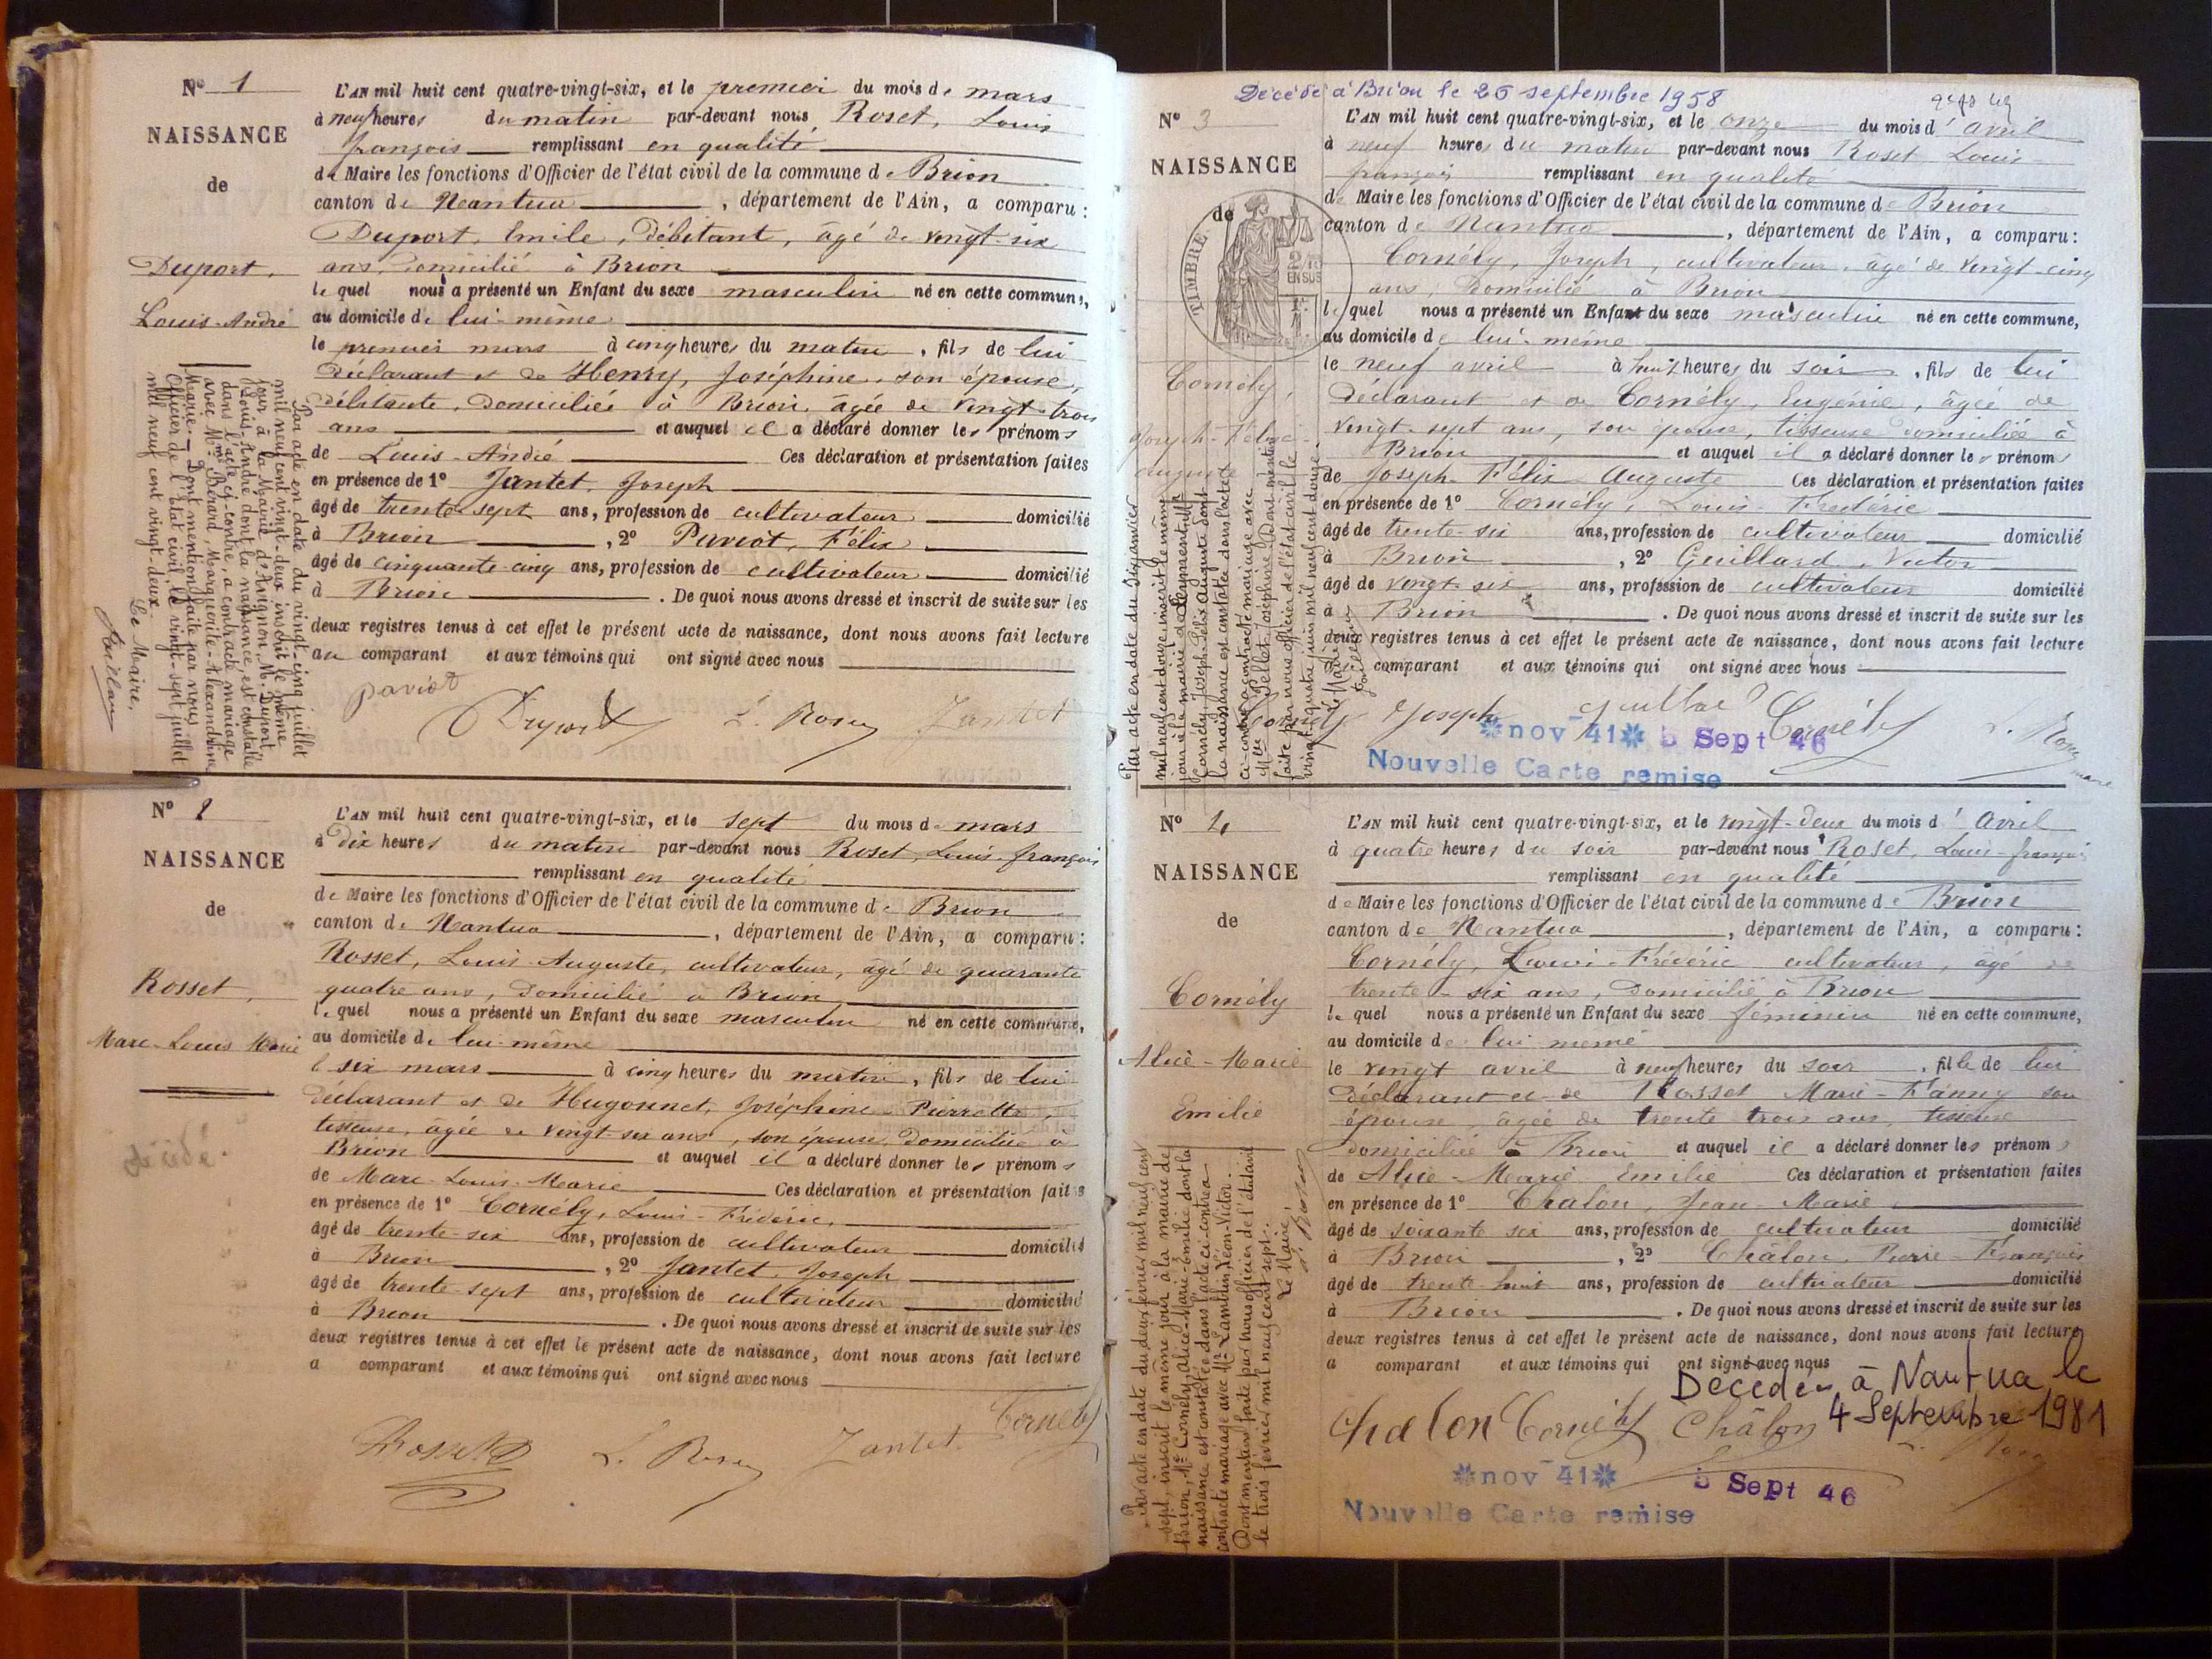 Nº 1
NAISSANCE
de
Duport,
Louis-André
L'AN mil huit cent quatre-vingt-six, et le premier du mois de mars
à neuf heures du matin par-devant nous Roset, Louis
françois remplissant en qualité
de Maire les fonctions d'Officier de l'état civil de la commune de Brion
canton de Nantua, département de l'Ain, a comparu :
Duport, Emile, Débitant, âgé de vingt-six
ans, Domicilié à Brion
lequel nous a présenté un Enfant du sexe masculin né en cette commune,
au domicile de lui-même
le premier mars à cinq heures du matin, fils de lui
déclarant et de Henry, Joséphine, son épouse,
débitante, Domiciliée à Brion, âgée de vingt-trois
ans et auquel il a déclaré donner les prénoms
de Louis-André Ces déclaration et présentation faites
en présence de 1º Jantet, Joseph
âgé de trente-sept ans, profession de cultivateur domicilié
à Brion, 2º Paviot, Félix
âgé de cinquante-cinq ans, profession de cultivateur domicilié
à Brion. De quoi nous avons dressé et inscrit de suite sur les
deux registres tenus à cet effet le présent acte de naissance, dont nous avons fait lecture
au comparant et aux témoins qui ont signé avec nous
paviot
Duport L. Roset Jantet
Par acte en date du vingt-cinq juillet
mil neuf cent vingt-deux inscrit le même
jour à la Mairie d'Avignon, M. Duport,
Louis-André dont la naissance est constatée
dans l'acte ci-contre, a contracté mariage
avec Mme Bérard, Marguerite-Alexandrine
Marie. Dont mention faite par nous
Officier de l'état civil, le vingt-sept juillet
mil neuf cent vingt-deux
Le Maire,
Nº 2
NAISSANCE
de
Rosset,
Marc-Louis Marie
L'AN mil huit cent quatre-vingt-six, et le sept du mois de mars
à Dix heures du matin par-devant nous Roset, Louis-françois
remplissant en qualité
de Maire les fonctions d'Officier de l'état civil de la commune de Brion
canton de Nantua, département de l'Ain, a comparu :
Rosset, Louis Auguste, cultivateur, âgé de quarante
quatre ans, Domicilié à Brion
lequel nous a présenté un Enfant du sexe masculin né en cette commune,
au domicile de lui-même
le six mars à cinq heures du matin, fils de lui
déclarant et de Hugonnet, Joséphine Pierrette,
tisseuse, âgée de vingt-six ans, son épouse, Domiciliée à
Brion et auquel il a déclaré donner les prénoms
de Marc-Louis-Marie Ces déclaration et présentation faites
en présence de 1º Cornély, Louis-Frédéric,
âgé de trente-six ans, profession de cultivateur domicilié
à Brion, 2º Jantet, Joseph
âgé de trente-sept ans, profession de cultivateur domicilié
à Brion. De quoi nous avons dressé et inscrit de suite sur les
deux registres tenus à cet effet le présent acte de naissance, dont nous avons fait lecture
a comparant et aux témoins qui ont signé avec nous
Rosset L. Roset Jantet Cornély
Décédé à Brion le 26 septembre 1958
Nº 3
NAISSANCE
de
TIMBRE
2/10
EN SUS
Cornély,
Joseph-Félix-
Auguste
L'AN mil huit cent quatre-vingt-six, et le onze du mois d'avril
à neuf heures du matin par-devant nous Roset Louis-
françois remplissant en qualité
de Maire les fonctions d'Officier de l'état civil de la commune de Brion
canton de Nantua, département de l'Ain, a comparu :
Cornély, Joseph, cultivateur, âgé de vingt-cinq
ans, Domicilié à Brion
lequel nous a présenté un Enfant du sexe masculin né en cette commune,
au domicile de lui-même
le neuf avril à huit heures du soir, fils de lui
déclarant et de Cornély, Eugénie, âgée de
vingt-sept ans, son épouse, tisseuse domiciliée à
Brion et auquel il a déclaré donner les prénoms
de Joseph-Félix Auguste Ces déclaration et présentation faites
en présence de 1º Cornély, Louis-Frédéric
âgé de trente-six ans, profession de cultivateur domicilié
à Brion, 2º Guillard, Victor
âgé de vingt-six ans, profession de cultivateur domicilié
à Brion. De quoi nous avons dressé et inscrit de suite sur les
deux registres tenus à cet effet le présent acte de naissance, dont nous avons fait lecture
comparant et aux témoins qui ont signé avec nous
Cornély Joseph Cornély
nov 41 5 Sept 46
Nouvelle Carte remise
Par acte en date du Six janvier
mil neuf cent douze, inscrit le même
jour à la mairie de
Cornély Joseph Félix Auguste dont
la naissance est constatée dans l'acte
ci-contre a contracté mariage avec
Melle Pellet Joséphine. Dont mention
faite par nous officier de l'état-civil le
vingt-quatre juin mil neuf cent douze
Nº 4
NAISSANCE
de
Cornély
Alice-Marie
Emilie
L'AN mil huit cent quatre-vingt-six, et le vingt-deux du mois d'Avril
à quatre heures du soir par-devant nous Roset, Louis-françois
remplissant en qualité
de Maire les fonctions d'Officier de l'état civil de la commune de Brion
canton de Nantua, département de l'Ain, a comparu :
Cornély, Louis-Frédéric cultivateur, âgé de
trente-six ans, Domicilié à Brion
lequel nous a présenté un Enfant du sexe féminin né en cette commune,
au domicile de lui même
le vingt avril à neuf heures du soir, fille de lui
déclarant et de Rosset Marie-Fanny son
épouse, âgée de trente trois ans, tisseuse
domiciliée à Brion et auquel il a déclaré donner les prénoms
de Alice-Marie Emilie Ces déclaration et présentation faites
en présence de 1º Chalon, Jean-Marie
âgé de soixante six ans, profession de cultivateur domicilié
à Brion, 2º Chalon, Pierre-François
âgé de trente-huit ans, profession de cultivateur domicilié
à Brion. De quoi nous avons dressé et inscrit de suite sur les
deux registres tenus à cet effet le présent acte de naissance, dont nous avons fait lecture
a comparant et aux témoins qui ont signé avec nous
Décédée à Nantua le
4 Septembre 1981
Chalon Cornély Châlon
nov 41 5 Sept 46
Nouvelle Carte remise
Par acte en date du deux février mil neuf cent
sept, inscrit le même jour à la mairie de
Brion, Mle Cornély, Alice-Marie-Emilie dont la
naissance est constatée dans l'acte ci-contre a
contracté mariage avec Mr Lambin, Léon-Victor.
Dont mention faite par nous officier de l'état civil
le trois février mil neuf cent sept.
Le Maire,